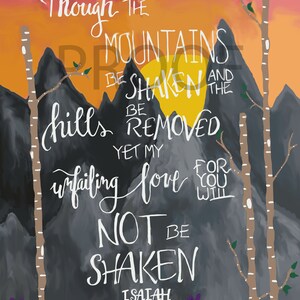 Though THE
MOUNTAINS
BE SHAKEN AND THE
hills BE REMOVED
YET MY
unfailing love FOR YOU WILL
NOT BE
SHAKEN
ISAIAH
PROOF